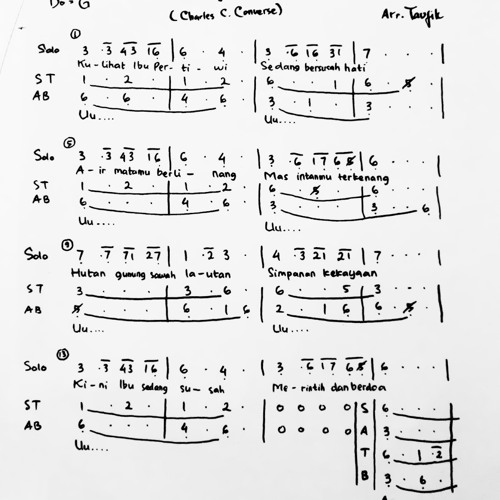 Do = G
(Charles C. Converse) Arr. Taufik
①
Solo 3 . 3 43 16 | 6 . 4 . | 3 . 6 16 31 | 7 . . . |
Ku-lihat Ibu Per-ti-wi Sedang bersusah hati
ST 1 . 2 . | 1 . 2 . | 6 . . 1 | 6 . 5 . |
AB 6 . 6 . | 4 . 6 . | 3 . 1 . | 3 . . . |
Uu.... Uu....
⑤
Solo 3 . 3 43 16 | 6 . 4 . | 3 . 6 17 65 | 6 . . . |
A-ir matamu berli-nang Mas intanmu terkenang
ST 1 . 2 . | 1 . 2 . | 6 . 5 . | 6 . . . |
AB 6 . . . | 4 . 6 . | 3 . . . | 3 . . 6 |
Uu.... Uu....
⑨
Solo 7 . 7 71 27 | 1 . 2 3 . | 4 . 3 21 21 | 7 . . . |
Hutan gunung sawah la-utan Simpanan kekayaan
ST 3 . . . | 3 . 6 . | 6 . . 5 | 3 . . . |
AB 5 . . . | 6 . 1 6 | 2 . 1 6 | 6 . 5 . |
Uu.... Uu....
⑬
Solo 3 . 3 43 16 | 6 . 4 . | 3 . 6 17 65 | 6 . . . |
Ki-ni Ibu sedang su-sah Me-rintih dan berdoa
ST 1 . 2 . | 1 . 2 . | 0 0 0 0 | S 6 . . .
AB 6 . . . | 4 . 6 . | 0 0 0 0 | A 3 . . .
Uu....
T 6 . 1 . 2
B 3 . 6 .